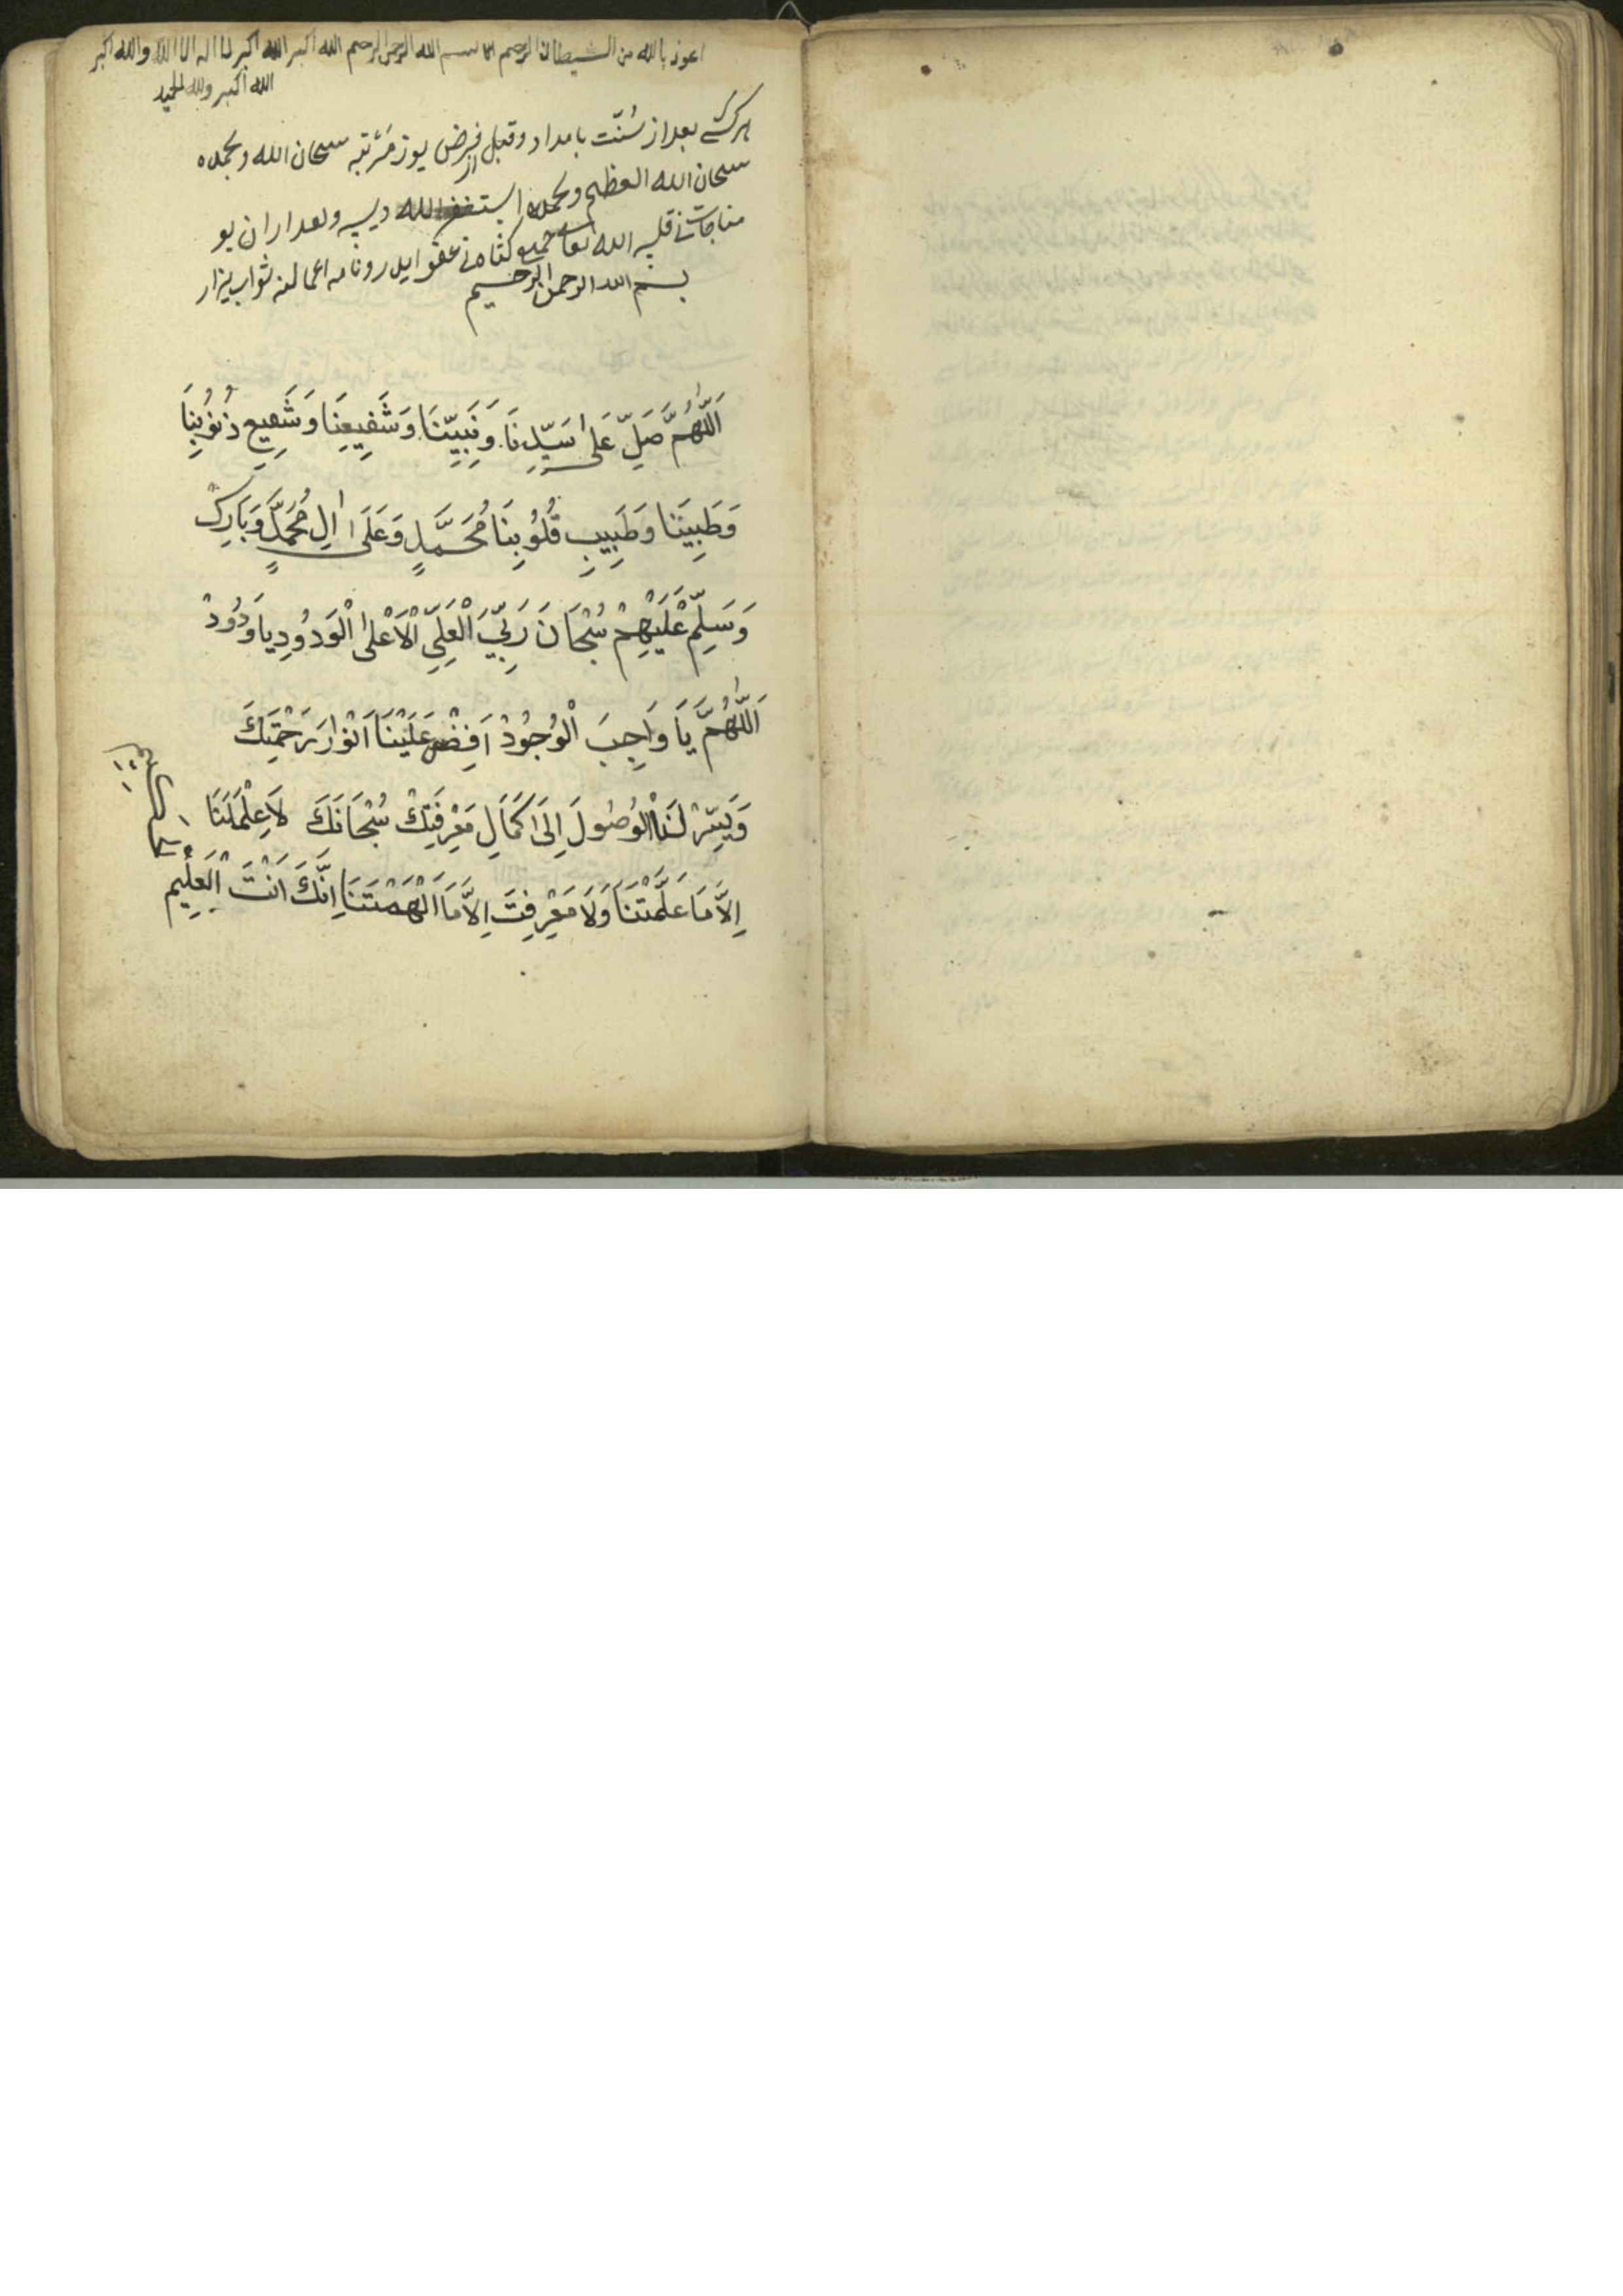 اعوذ بالله من الشيطان الرجيم بسم الله الرحمن الرحيم الله اكبر الله اكبر لا اله الا الله والله اكبر
الله اكبر ولله الحمد
هر كش بعد از سُنّت بامداد و قبل از فرض يوز مَرْتبه سبحان الله وبحمده
سبحان الله العظيم وبحمده استغفر الله ديسه وبعد از ان بو
مناجات نى قلسه الله تعا جميع كناه نى عفو ايلر ونامه اعمالنه ثواب يزار
بسم الله الرحمن الرحيم
اَللّٰهُمَّ صَلِّ عَلٰى سَيِّدِنَا وَنَبِيِّنَا وَشَفِيعِنَا وَشَفِيعِ ذُنُوُبِنَا
وَطَبِيبَنَا وَطَبِيبِ قُلُوُبِنَا مُحَمَّدٍ وَعَلَى اٰلِ مُحَمَّدٍ وَبَارِكْ
وَسَلِّمْ عَلَيْهِمْ سُبْحَانَ رَبِّيَ الْعَلِىِّ الْاَعْلٰى الْوَدُودِ يا وَدُودْ
اَللّٰهُمَّ يَا وَاجِبَ الْوُجُودْ اَفِضْ عَلَيْنَا اَنْوَارَ رَحْمَتِكَ
وَيَسِّرْ لَنَا الْوُصُولَ اِلَى كَمَالِ مَعْرِفَتِكْ سُبْحَانَكَ لاَ عِلْمَ لَنَا
اِلاَّ مَا عَلَّمْتَنَا وَلَا مَعْرِفتَ اِلاَّ مَا اَلْهَمْتَنَا اِنَّكَ اَنْتَ الْعَلِيم
الحكيم